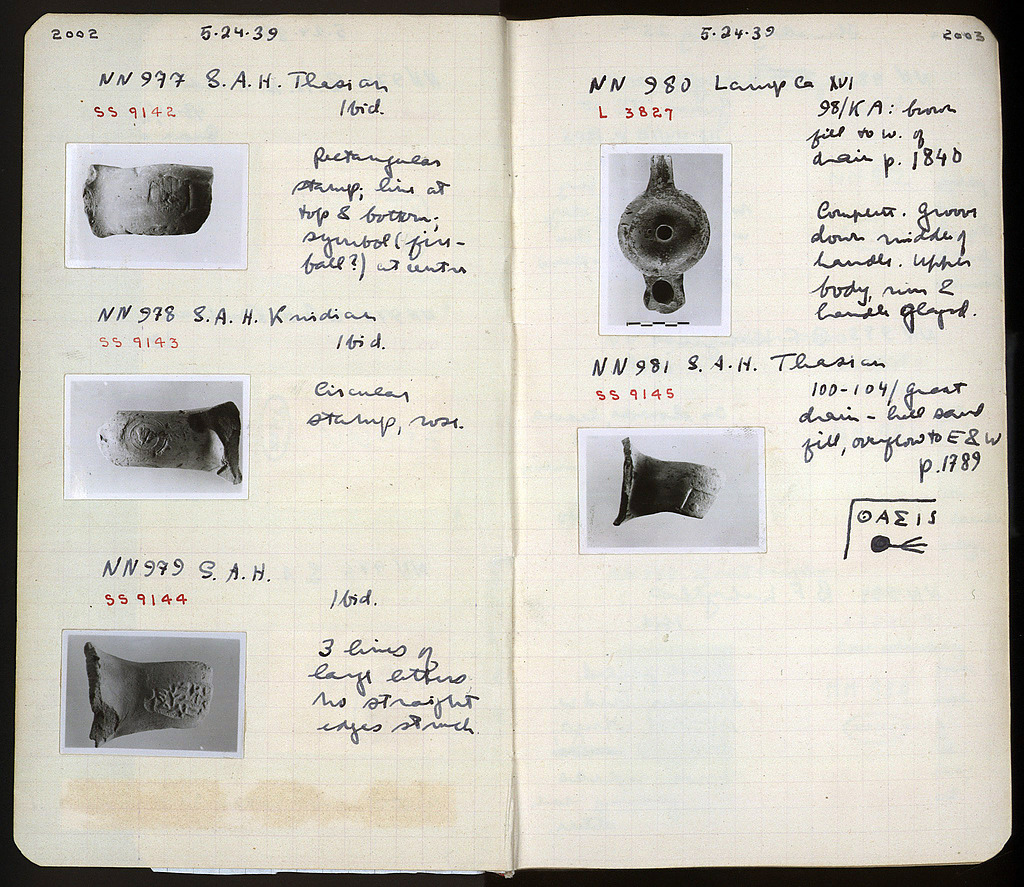 2002
5·24·39
NN 977 S.A.H. Thasian
SS 9142
Ibid.
Rectangular
stamp; line at
top & bottom;
symbol (fire-
ball?) at centre
NN 978 S.A.H. Knidian
SS 9143
Ibid.
Circular
stamp, rose.
NN 979 S.A.H.
SS 9144
Ibid.
3 lines of
large letters
no straight
edges struck
5·24·39
2003
NN 980 Lamp Ca XVI
L 3827
98/KA: brown
fill to w. of
drain p. 1840
Complete. Groove
down middle of
handle. Upper
body, rim &
handle glazed.
NN 981 S.A.H. Thasian
SS 9145
100-104/ Great
drain - sand
fill, overflow to E & W
p. 1789
ΘΑΣΙ